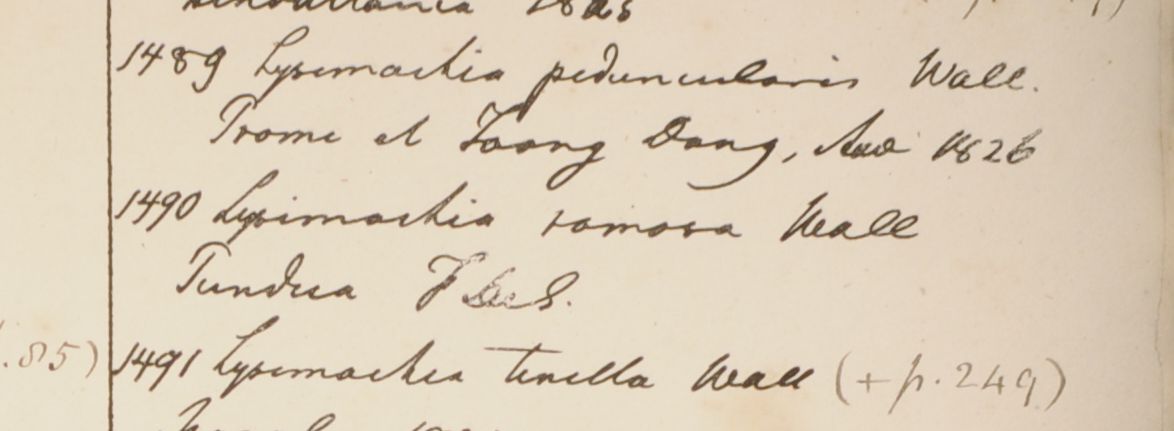 1489 Lysimachia peduncularis Wall.
Prome et Toong Dong, 1826
1490 Lysimachia ramosa Wall
Tundua
.85) 1491 Lysimachia tenella Wall (+ p. 249)